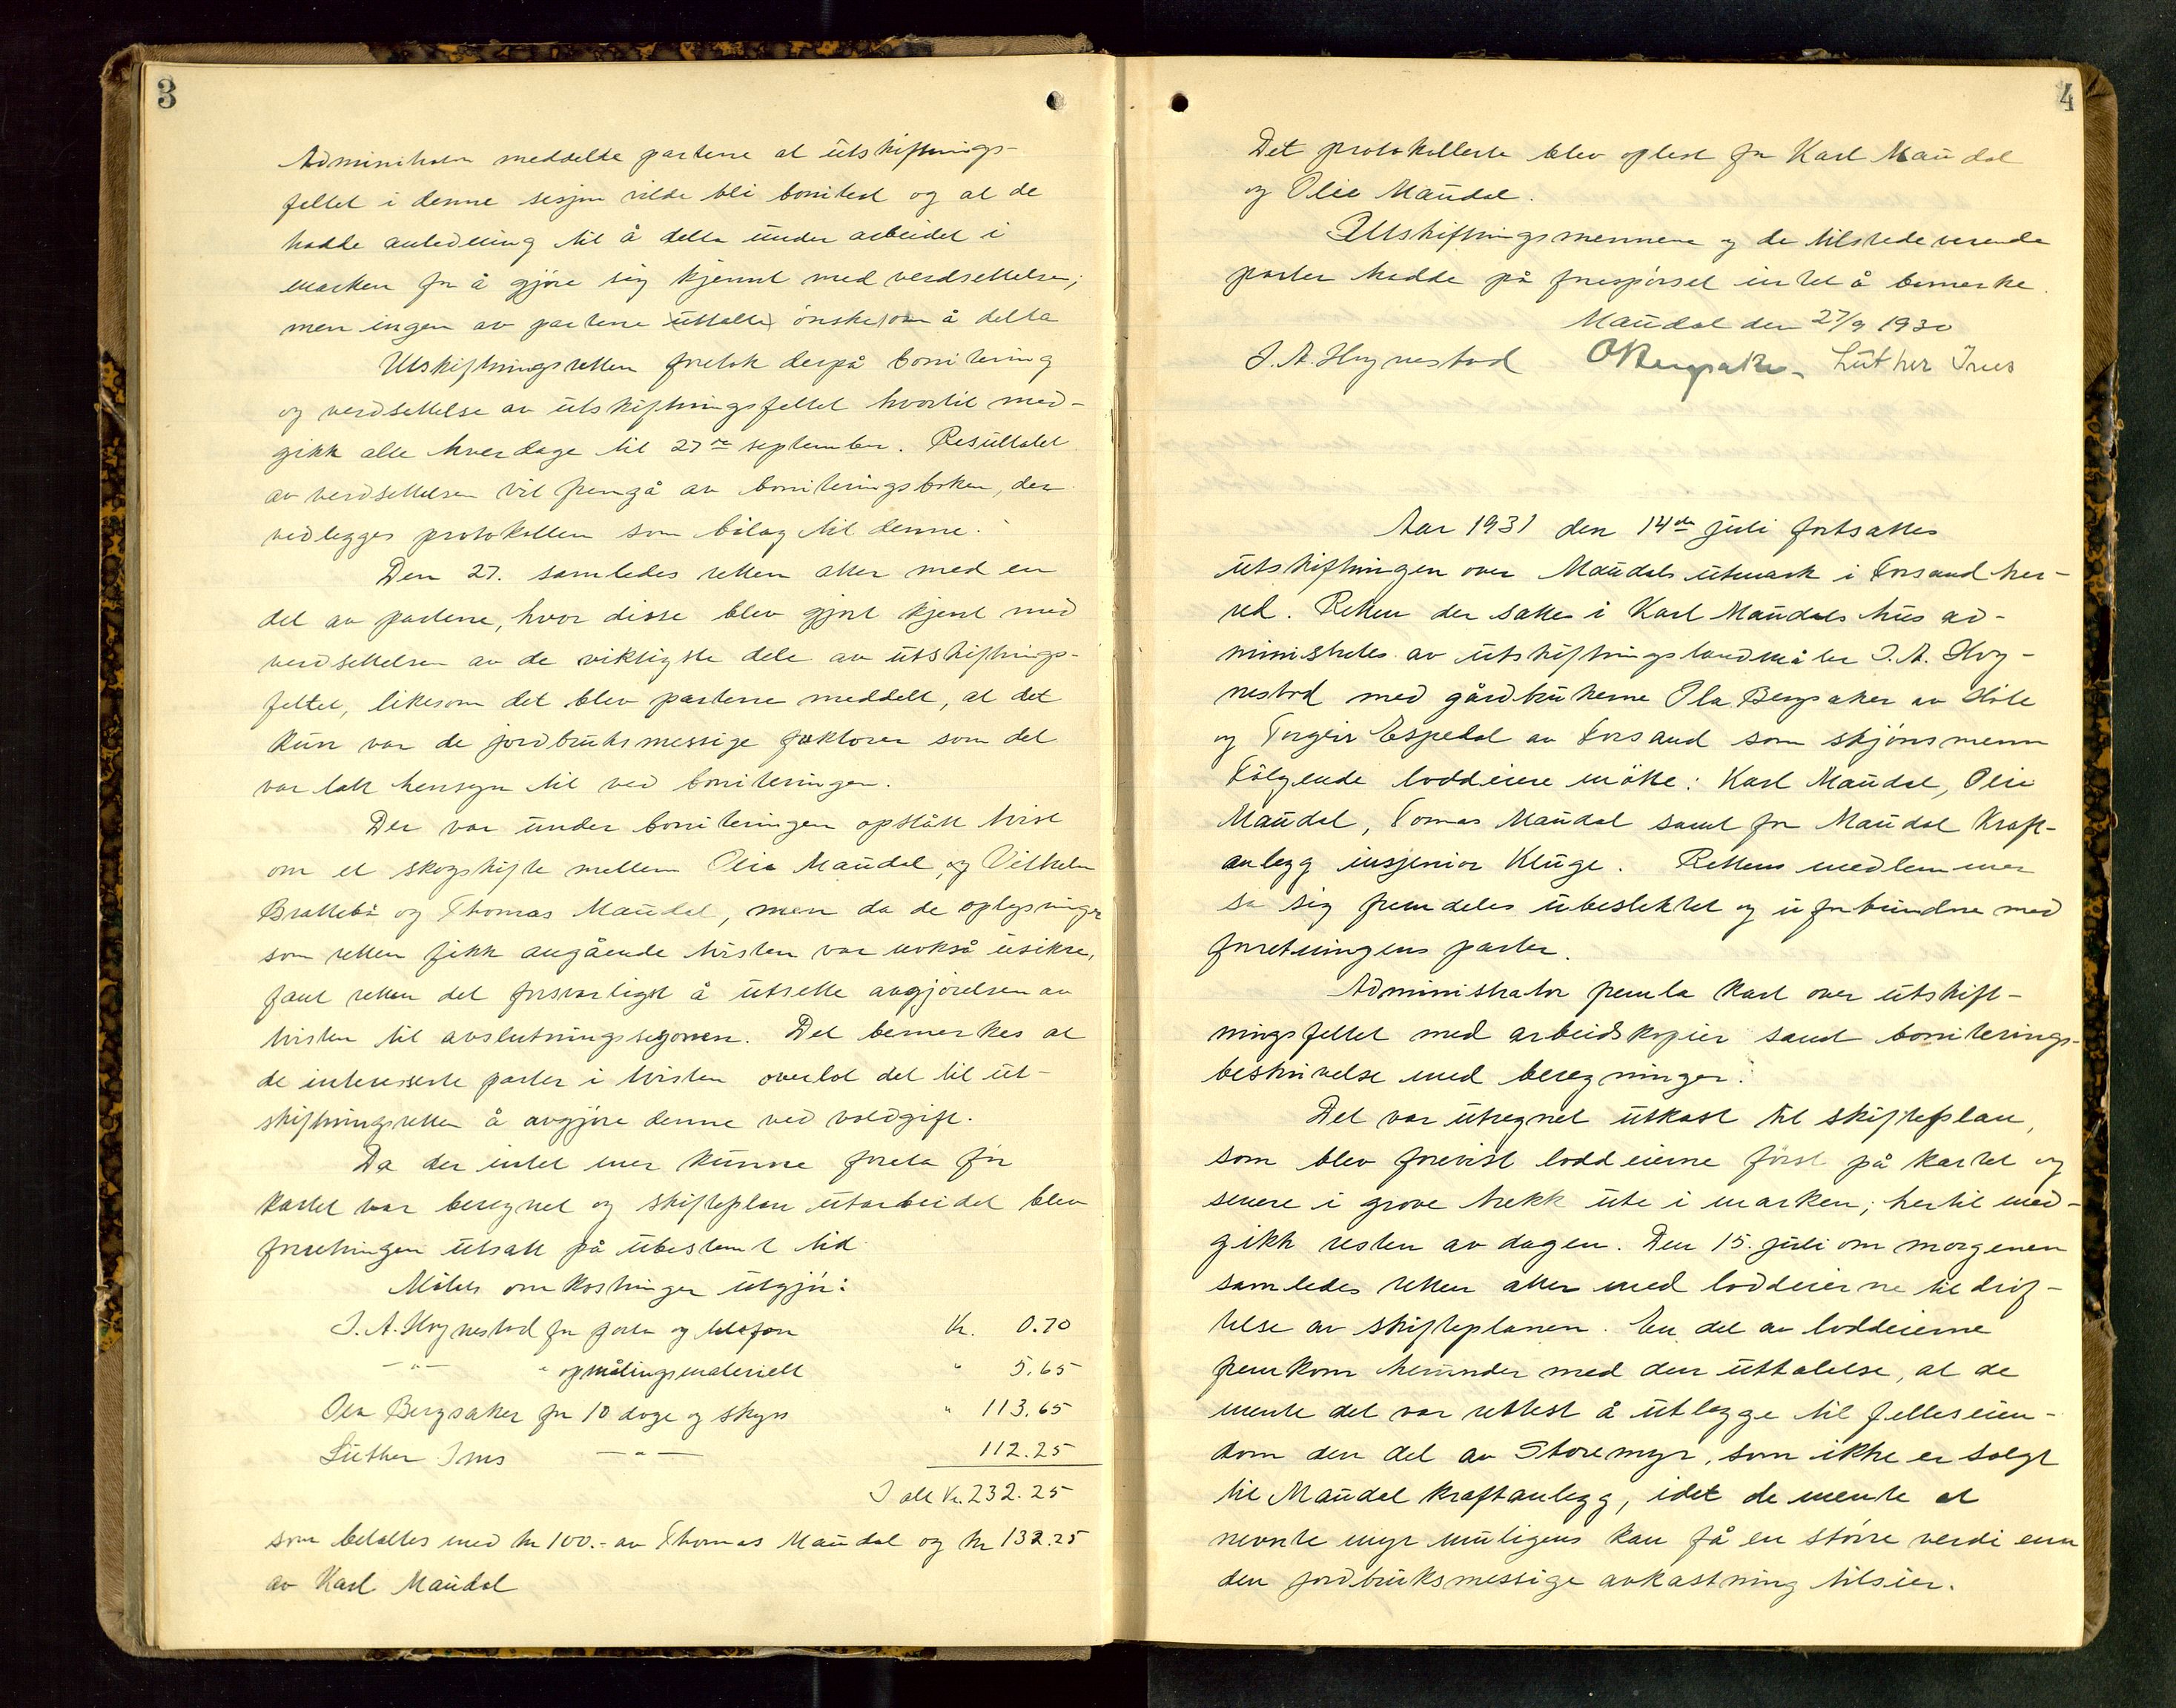 3
Administrator meddelte partene at utskiftnings-
feltet i denne sesjon vilde bli bonitert og at de
hadde anledning til å delta under arbeidet i
marken for å gjøre sig kjennt med verdsettelsen;
men ingen av partene uttalte ønske om å delta
Utskiftningsretten foretok derpå bonitering
og verdsettelse av utskiftningsfeltet hvortil med-
gikk alle hverdage til 27de september. Resultatet
av verdsettelsen vil fremgå av boniteringsboken, der
vedlegges protokollen som bilag til denne.
Den 27. samledes retten atter med en
del av partene, hvor disse blev gjort kjent med
verdsettelsen av de viktigste dele av utskiftnings-
feltet, likesom det blev partene meddelt, at det
kun var de jordbruksmessige faktorer som det
var tatt hensyn til ved boniteringen.
Der var under boniteringen opstått tvist
om et skogskifte mellem Olie Maudal, og Vilhelm
Brattebø og Thomas Maudal, men da de oplysninger
som retten fikk angående tvisten var nokså usikre,
fant retten det forsvarligst å utsette avgjørelsen av
tvisten til avslutningssesjonen. Det bemerkes at
de interesserte parter i tvisten overlot det til ut-
skiftningsretten å avgjøre denne ved voldgift.
Da der intet mer kunne foreta før
kartet var beregnet og skifteplan utarbeidet blev
forretningen utsatt på ubestemt tid
Møtets omkostninger utgjør:
J. A. Høynestad for porto og telefon Kr. 0.70
—"— " opmålingsmateriell " 5.65
Ola Bergsaker for 10 dage og skyss " 113.65
Luther Ims —"— 112.25
I alt Kr. 232.25
som betaltes med kr 100.- av Thomas Maudal og kr 132.25
av Karl Maudal
4
Det protokollerte blev oplest for Karl Maudal
og Olie Maudal.
Utskiftningsmennene og de tilstedeverende
parter hadde på forespørsel intet å bemerke.
Maudal den 27/9 1930
J. A. Høynestad OBergsaker Luther Imes
Aar 1931 den 14de juli fortsattes
utskiftningen over Maudals utmark i Forsand her-
red. Retten der sattes i Karl Maudals hus ad-
ministretes av utskiftningslandmåler J. A. Høy-
nestad med gårdbrukerne Ola Bergsaker av Høle
og Torgeir Espedal av Forsand som skjønsmenn
Følgende loddeiere møtte: Karl Maudal, Olie
Maudal, Tomas Maudal samt for Maudal Kraft-
anlegg insjeniør Kluge. Rettens medlemmer
sa sig fremdeles ubeslektet og uforbundne med
forretningens parter.
Administrator fremla kart over utskift-
ningsfeltet med arbeidskopier samt boniterings-
beskrivelse med beregninger.
Det var utregnet utkast til skifteplan,
som blev forevist loddeierne først på kartet og
senere i grove trekk ute i marken; hertil med-
gikk resten av dagen. Den 15. juli om morgenen
samledes retten atter med loddeierne til drøf-
telse av skifteplanen. En del av loddeierne
fremkom herunder med den uttalelse, at de
mente det var rettest å utlegge til felleseien-
dom den del av Storemyr, som ikke er solgt
til Maudal kraftanlegg, idet de mente at
nevnte myr muligens kan få en større verdi enn
den jordbruksmessige avkastning tilsier.